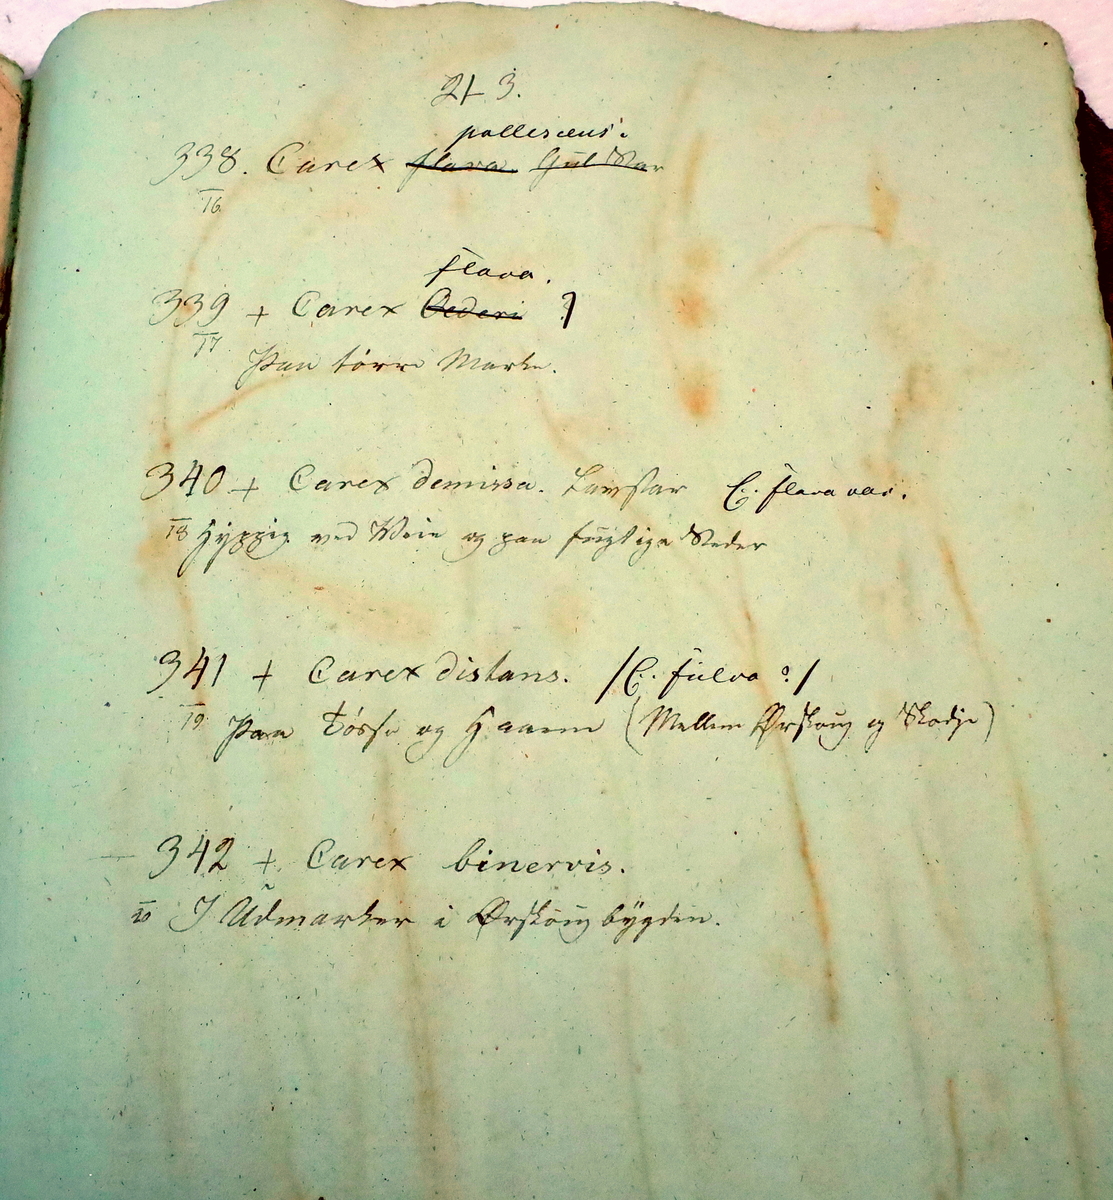 21 3.
pallescens.
338. Carex flava. Gul Star
16
flava.
339 + Carex Oederi ?
17
Paa tørre Marke.
340 + Carex demissa. Lavstar C. flava var.
18 Hyppig ved Veie og paa fugtige Steder
341 + Carex distans. /C. fulva ?/
19 Paa og (Mellem Ørskoug og Skodje)
342 + Carex binervis.
20 I Udmarker i Ørskougbygden.